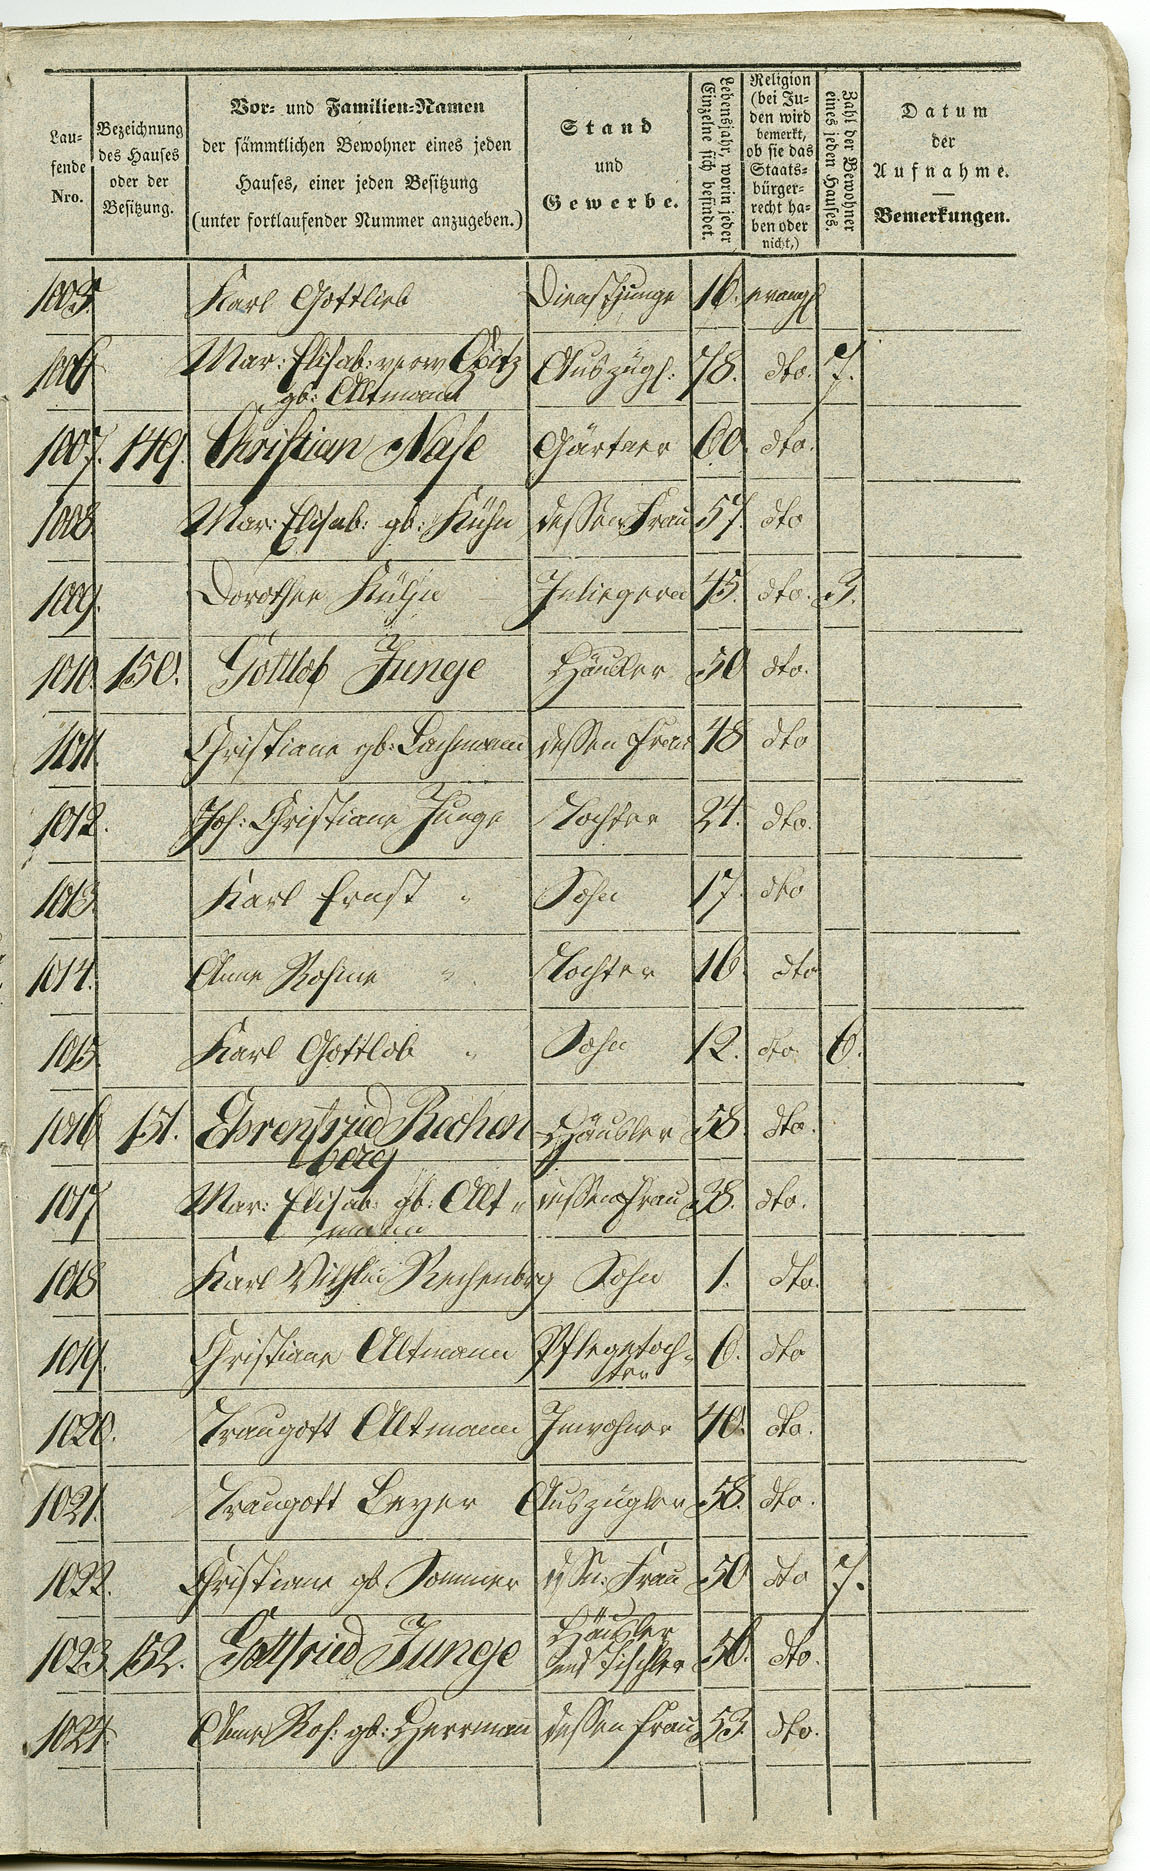 Lau-
fende
Nro.
Bezeichnung
des Hauses
oder der
Besitzung.
Vor- und Familien-Namen
der sämmtlichen Bewohner eines jeden
Hauses, einer jeden Besitzung
(unter fortlaufender Nummer anzugeben.)
Stand
und
Gewerbe.
Lebensjahr, worin jeder
Einzelne sich befindet.
Religion
(bei Ju-
den wird
bemerkt,
ob sie das
Staats-
bürger-
recht ha-
ben oder
nicht,)
Zahl der Bewohner
eines jeden Hauses.
Datum
der
Aufnahme.
Bemerkungen.
1005. Karl Gottlieb Dienstjunge 16. evangl
1006 Mar: Elisab: verw Opitz Auszügl: 78. dto. 7.
gb: Altmann
1007. 149. Christian Nase Gärtner 60. dto.
1008. Mar: Elisab: gb: Kühn dessen Frau 57. dto
1009. Dorothee Kühn Inliegerin 45. dto. 3.
1010. 150. Gottlob Junge Häusler 50 dto.
1011. Christiane gb: Lachmann dessen Frau 48 dto
1012. Joh: Christiane Junge Tochter 24. dto.
1013. Karl Ernst " Sohn 17. dto
1014. Anne Rosine " Tochter 16. dto
1015. Karl Gottlob " Sohn 12. dto. 6.
1016 151. Ehrenfried Rechen Häusler 58. dto.
berg
1017 Mar: Elisab: gb: Alt " dessen Frau 38. dto.
mann
1018 Karl Wilhlm Rechenberg Sohn 1. dto.
1019. Christiane Altmann Pflegetoch- 6. dto
ter
1020. Traugott Altmann Inwohner 40. dto.
1021. Traugott Beyer Auszügler 58. dto.
1022. Christiane gb. Sommer dssn: Frau 50 dto 7.
1023. 152. Gottfried Junge Häusler
und Tischler 56. dto.
1024. Anne Ros: gb: Herrmann dessen Frau 53 dto.